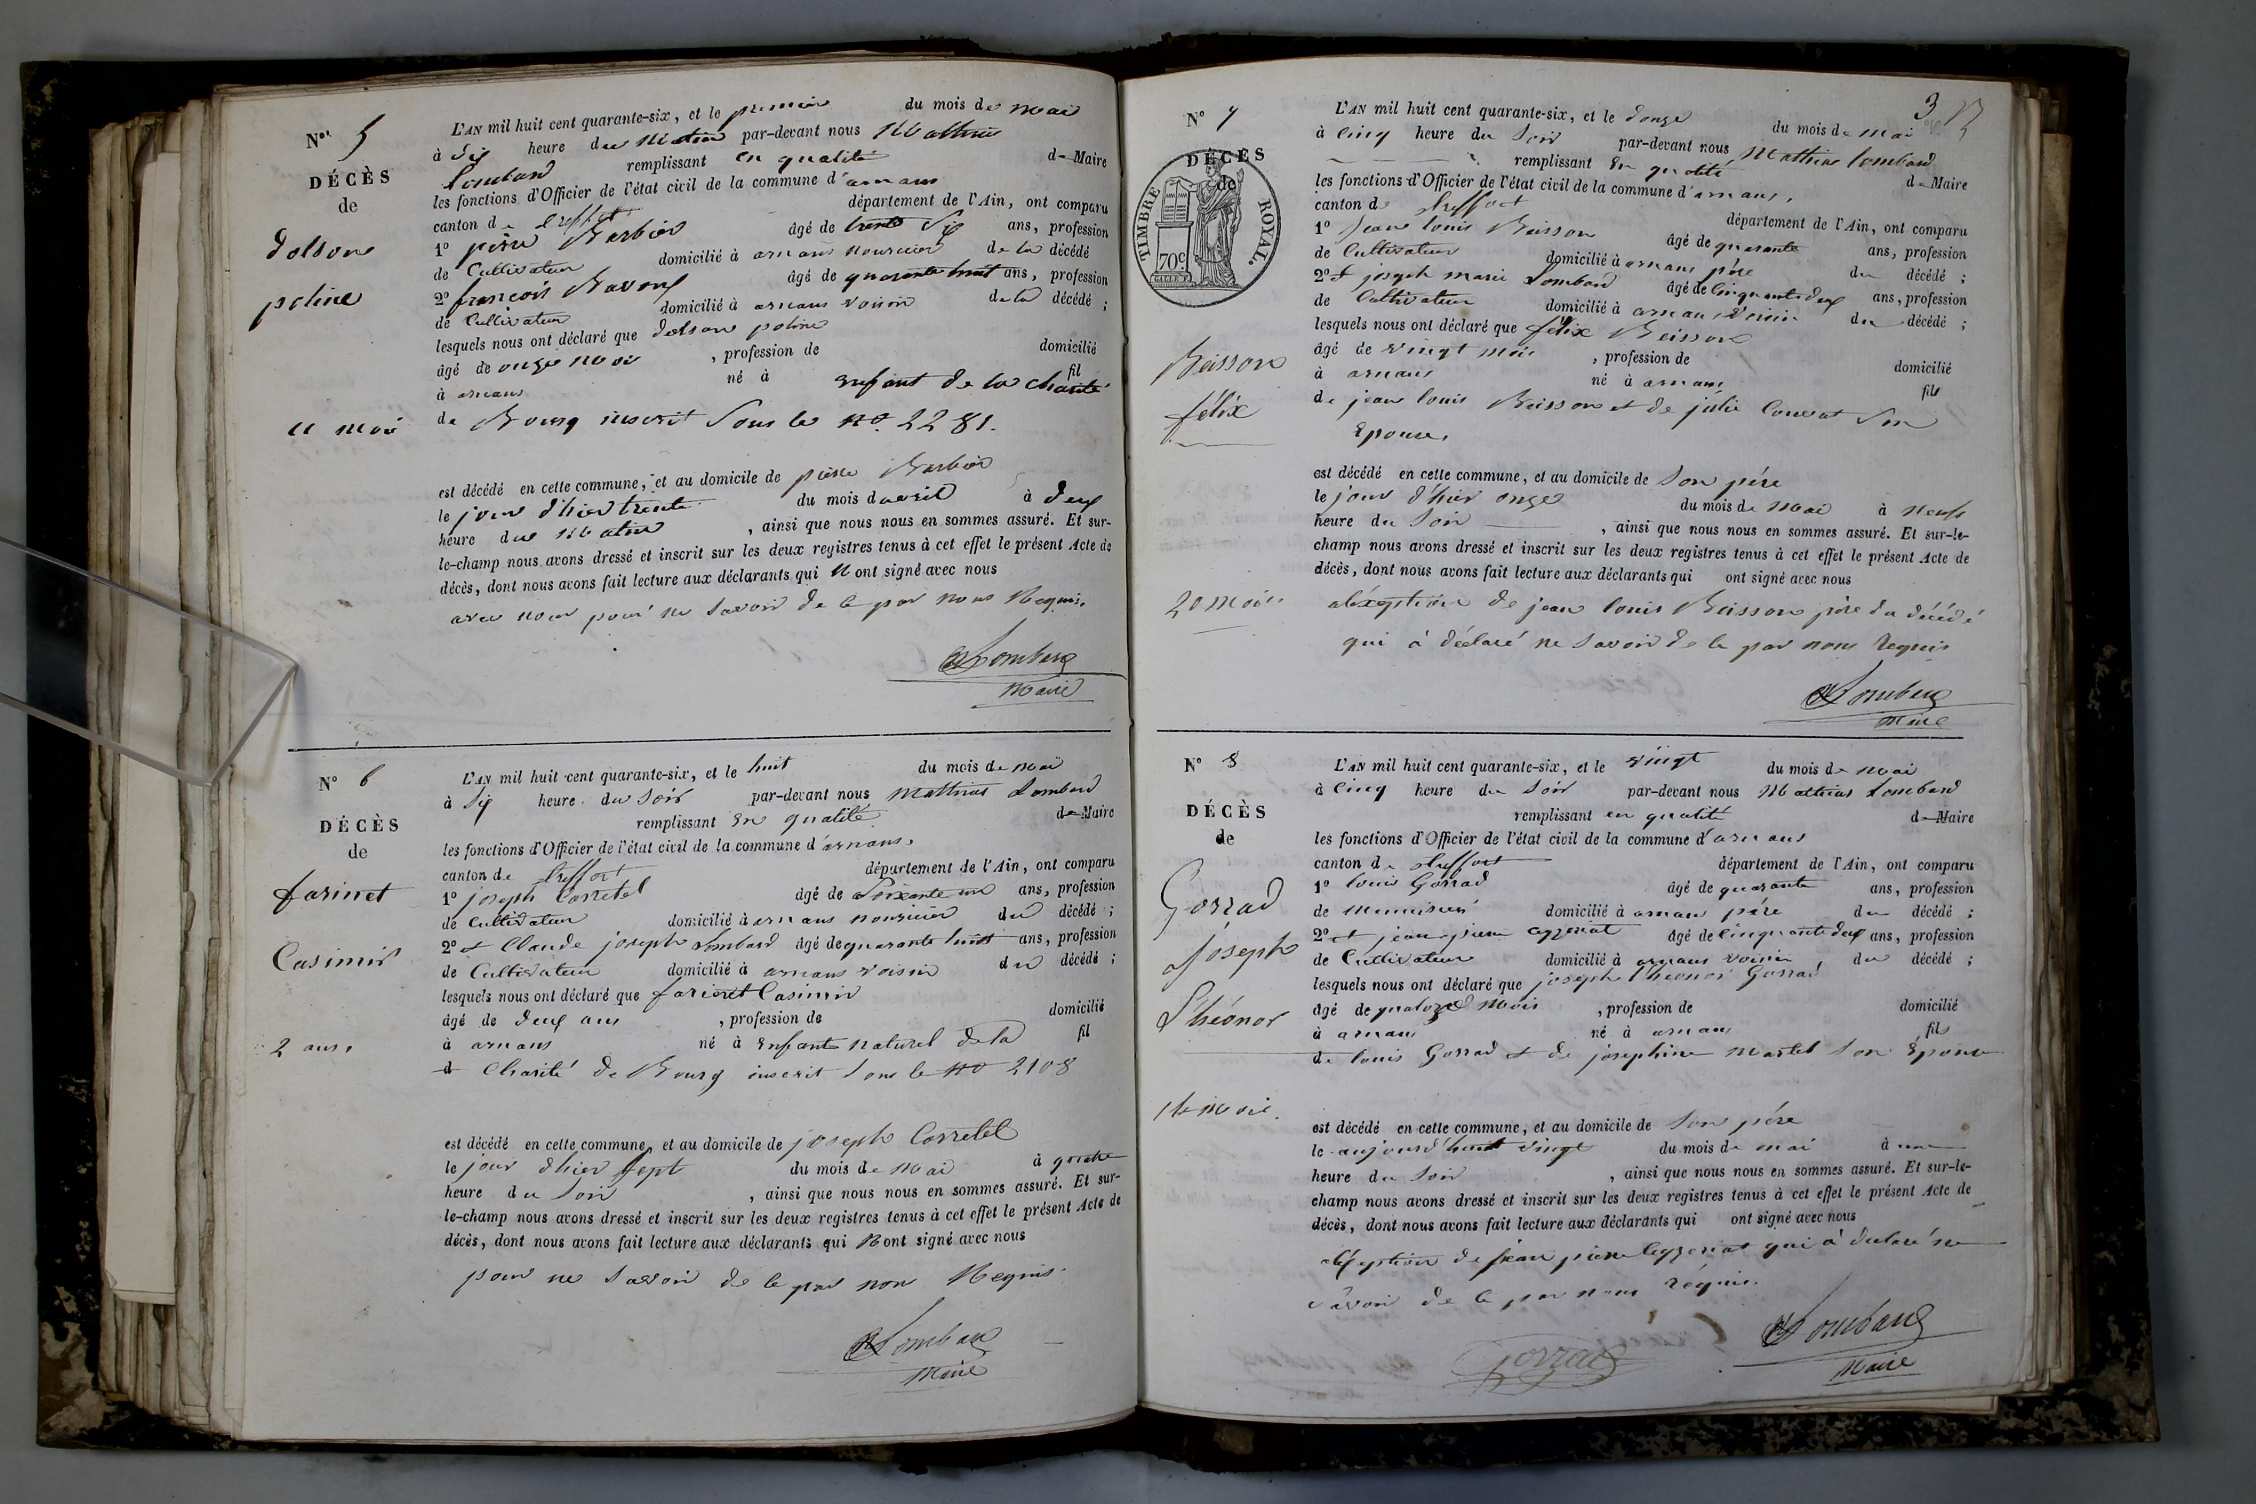 Nos 5
DÉCÈS
de
dolson
poline
11 moi
L'AN mil huit cent quarante-six, et le premier du mois de mai
à Six heure du Matin par-devant nous Mathieu
Lombard remplissant en qualité de Maire
les fonctions d'Officier de l'état civil de la commune d'arnans
canton de treffort département de l'Ain, ont comparu
1º piere Barbier âgé de trente Six ans, profession
de Cultivateur domicilié à arnans nouricier de la décédé
2º françois Bavoux âgé de quarante huit ans, profession
de Cultivateur domicilié à arnans voisin de la décédé ;
lesquels nous ont déclaré que dolson poline
âgé de onze moi , profession de domicilié
à arnans né à enfant de la charité fil
de Bourg inscrit Sous le nº 2281.
est décédé en cette commune, et au domicile de piere Barbier
le jour d'hier trente du mois d'avril à deux
heure du Matin , ainsi que nous nous en sommes assuré. Et sur-
le-champ nous avons dressé et inscrit sur les deux registres tenus à cet effet le présent Acte de
décès, dont nous avons fait lecture aux déclarants qui N ont signé avec nous
avec nour pour ne Savoir de le par nous Requis.
Lombard
Maire
Nº 6
DÉCÈS
de
farinet
Casimir
2 ans.
L'AN mil huit cent quarante-six, et le huit du mois de mai
à Six heure du Soir par-devant nous Mathieu Lombard
remplissant En qualité de Maire
les fonctions d'Officier de l'état civil de la commune d'arnans.
canton de treffort département de l'Ain, ont comparu
1º joseph Corretel âgé de Soixante un ans, profession
de Cultivateur domicilié à arnans nouricier du décédé ;
2º et Claude joseph Lombard âgé de quarante huit ans, profession
de Cultivateur domicilié à arnans voisin du décédé ;
lesquels nous ont déclaré que farinet Casimir
âgé de deux ans , profession de domicilié
à arnans né à Enfant naturel de la fil
d Charité de Bourg inscrit Sous le nº 2108
est décédé en cette commune, et au domicile de joseph Corretel
le jour d'hier Sept du mois de Mai à quatre
heure du Soir , ainsi que nous nous en sommes assuré. Et sur-
le-champ nous avons dressé et inscrit sur les deux registres tenus à cet effet le présent Acte de
décès, dont nous avons fait lecture aux déclarants qui N ont signé avec nous
pour ne Savoir de le par nou Requis.
Lombard
Maire
3
Nº 7
DÉCÈS
de
TIMBRE ROYAL.
70c
Buisson
félix
20 mois
L'AN mil huit cent quarante-six, et le douze du mois de mai
à Cinq heure du Soir par-devant nous Mathieu Lombard
remplissant En qualité de Maire
les fonctions d'Officier de l'état civil de la commune d'arnans.
canton de treffort département de l'Ain, ont comparu
1º Jean louis Buisson âgé de quarante ans, profession
de Cultivateur domicilié à arnans père du décédé ;
2º et joseph marie Lombard âgé de Cinquante deux ans, profession
de Cultivateur domicilié à arnans voisin du décédé ;
lesquels nous ont déclaré que félix Buisson
âgé de vingt mois , profession de domicilié
à arnans né à arnans fils
de jean louis Buisson et de julie Convert Son
Epouse.
est décédé en cette commune, et au domicile de Son père
le jour d'hier onze du mois de Mai à Neuf
heure du Soir , ainsi que nous nous en sommes assuré. Et sur-le-
champ nous avons dressé et inscrit sur les deux registres tenus à cet effet le présent Acte de
décès, dont nous avons fait lecture aux déclarants qui ont signé avec nous
aléxeption de jean louis Buisson père du décédé
qui à déclaré ne Savoir de le par nous Requis
Lombard
Maire
Nº 8
DÉCÈS
de
Gorrad
joseph
L'héonor
14 moi.
L'AN mil huit cent quarante-six, et le vingt du mois de mai
à Cinq heure du Soir par-devant nous Mathieu Lombard
remplissant en qualité de Maire
les fonctions d'Officier de l'état civil de la commune d'arnans
canton de treffort département de l'Ain, ont comparu
1º louis Gorrad âgé de quarante ans, profession
de Menuisier domicilié à arnans père du décédé ;
2º et jean piere âgé de Cinquante deux ans, profession
de Cultivateur domicilié à arnans voisin du décédé ;
lesquels nous ont déclaré que joseph l'héonor Gorrad
âgé de quatorze Mois , profession de domicilié
à arnans né à arnans fils
de louis Gorrad et de josephine Martel Son Epouse
est décédé en cette commune, et au domicile de Son père
le aujourd'huit vingt du mois de mai à une
heure du Soir , ainsi que nous nous en sommes assuré. Et sur-le-
champ nous avons dressé et inscrit sur les deux registres tenus à cet effet le présent Acte de
décès, dont nous avons fait lecture aux déclarants qui ont signé avec nous
aléxeption de jean piere qui à déclaré ne
Savoir de le par nous réquis.
Gorrad
Lombard
Maire